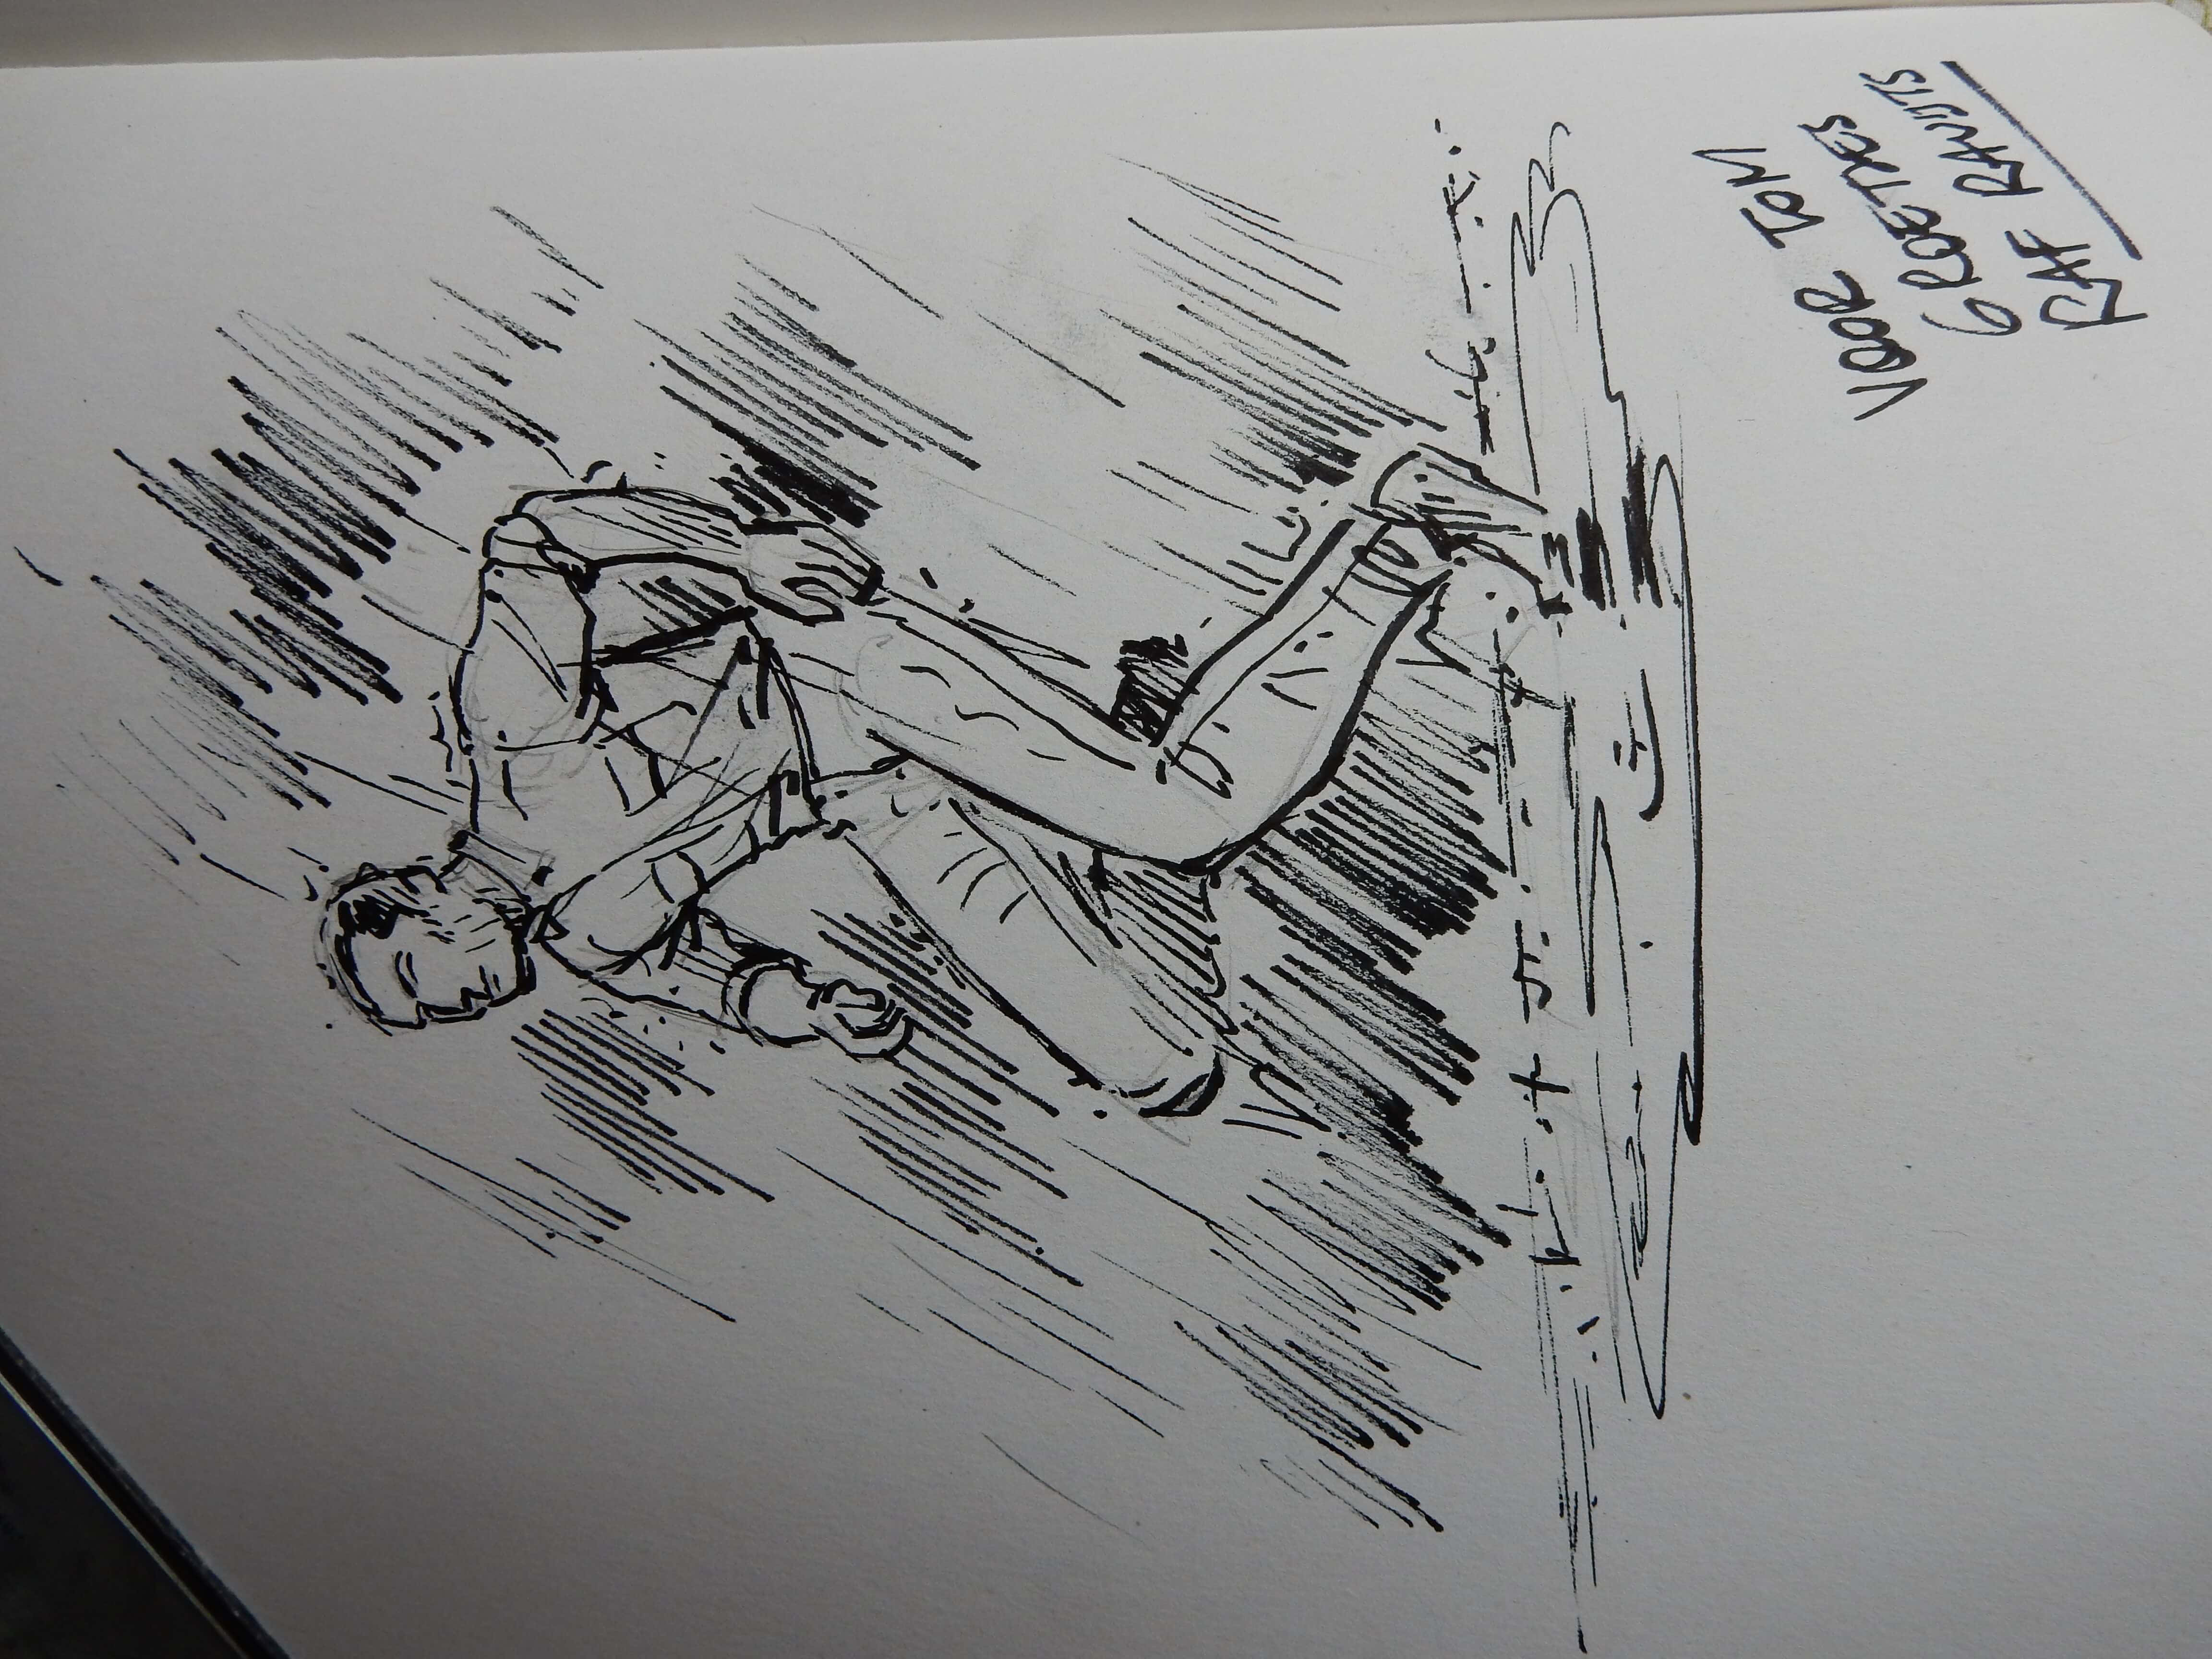 VOOR TOM
GROETJES
RAF RAVIJTS